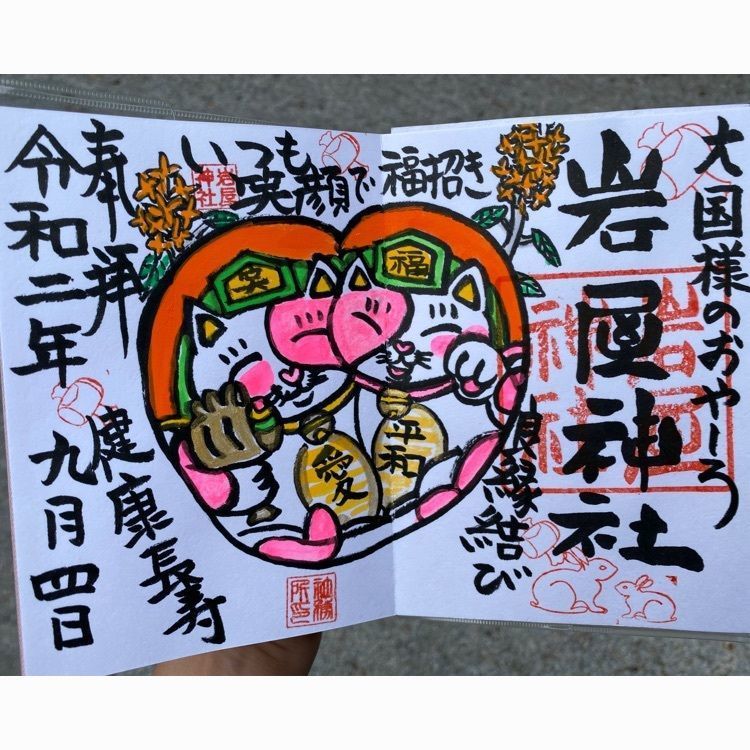 大国様のおやしろ
岩屋神社
岩屋
神社
いつも笑顔で福招き
岩屋
神社
福
笑
平和
愛
良縁結び
奉拝
令和二年九月四日
健康長寿